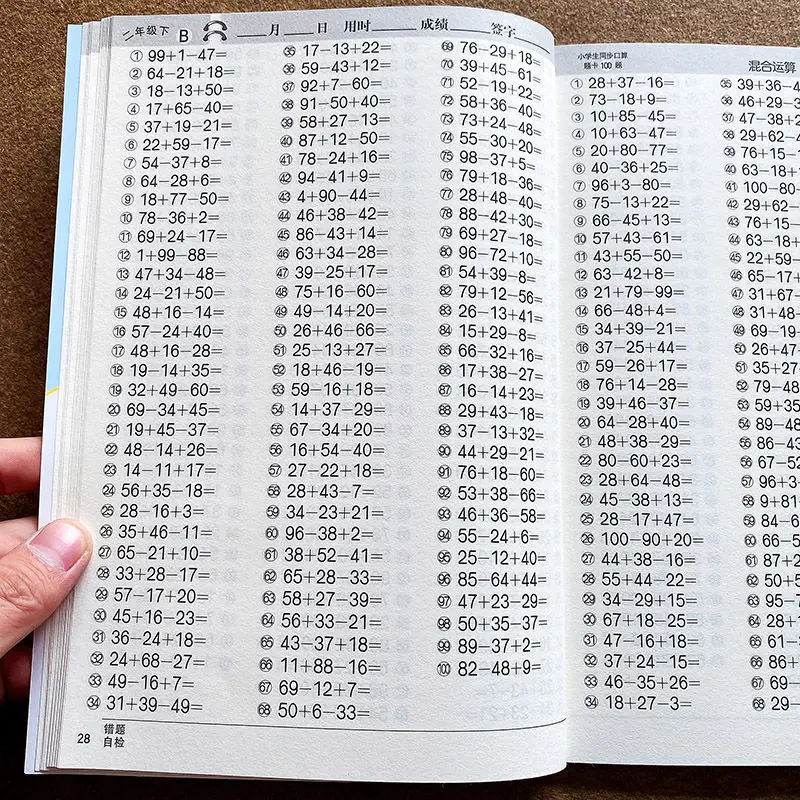 二年级下 B ___月___日 用时___ 成绩___ 签字___
① 99+1−47=
② 64−21+18=
③ 18−13+50=
④ 17+65−40=
⑤ 37+19−21=
⑥ 22+59−17=
⑦ 54−37+8=
⑧ 64−28+6=
⑨ 18+77−50=
⑩ 78−36+2=
⑪ 69+24−17=
⑫ 1+99−88=
⑬ 47+34−48=
⑭ 24−21+50=
⑮ 48+16−14=
⑯ 57−24+40=
⑰ 48+16−28=
⑱ 19−14+35=
⑲ 32+49−60=
⑳ 69−34+45=
㉑ 19+45−37=
㉒ 48−14+26=
㉓ 14−11+17=
㉔ 56+35−18=
㉕ 28−16+3=
㉖ 35+46−11=
㉗ 65−21+10=
㉘ 33+28−17=
㉙ 57−17+20=
㉚ 45+16−23=
㉛ 36−24+18=
㉜ 24+68−27=
㉝ 49−16+7=
㉞ 31+39−49=
㉟ 17−13+22=
㊱ 59−43+12=
㊲ 92+7−60=
㊳ 91−50+40=
㊴ 58+27−13=
㊵ 87+12−50=
㊶ 78−24+16=
㊷ 94−41+9=
㊸ 4+90−44=
㊹ 46+38−42=
㊺ 86−43+14=
㊻ 63+34−28=
㊼ 39−25+17=
㊽ 75+16−60=
㊾ 49−14+20=
㊿ 26+46−66=
51 25−13+27=
52 18+46−19=
53 59−16+18=
54 14+37−29=
55 67−34+20=
56 16+54−40=
57 27−22+18=
58 28+43−7=
59 34−23+21=
60 96−38+2=
61 38+52−41=
62 65+28−33=
63 58+27−39=
64 56+33−21=
65 43−37+18=
66 11+88−16=
67 69−12+7=
68 50+6−33=
69 76−29+18=
70 39+45−61=
71 52−19+22=
72 58+36−40=
73 73+24−48=
74 55−30+20=
75 98−37+5=
76 79+18−36=
77 28+48−40=
78 88−42+30=
79 69+27−18=
80 96−72+10=
81 54+39−8=
82 79+12−56=
83 26−13+41=
84 15+29−8=
85 66−32+16=
86 17+38−27=
87 16−14+23=
88 29+43−18=
89 37−13+32=
90 44+29−21=
91 76+18−60=
92 53+38−66=
93 46+36−58=
94 55−24+6=
95 25−12+40=
96 85−64+44=
97 47+23−29=
98 50+35−37=
99 89−37+2=
100 82−48+9=
28
错题
自检
小学生同步口算
题卡 100 题
混合运算
① 28+37−16=
② 73−18+9=
③ 10+85−45=
④ 10+63−47=
⑤ 20+80−77=
⑥ 40−36+25=
⑦ 96+3−80=
⑧ 75−13+22=
⑨ 66−45+13=
⑩ 57+43−61=
⑪ 43+55−50=
⑫ 63−42+8=
⑬ 21+79−99=
⑭ 66−48+4=
⑮ 34+39−21=
⑯ 37−25+44=
⑰ 59−26+17=
⑱ 76+14−28=
⑲ 39+46−37=
⑳ 64−28+40=
㉑ 48+38−29=
㉒ 80−60+23=
㉓ 28+64−48=
㉔ 45−38+13=
㉕ 28−17+47=
㉖ 100−90+20=
㉗ 44+38−16=
㉘ 55+44−22=
㉙ 34−29+15=
㉚ 67+18−25=
㉛ 47−16+18=
㉜ 37+24−15=
㉝ 46−35+26=
㉞ 18+27−3=
㉟ 39+36−4
㊱ 46+29−3
㊲ 47−38+2
㊳ 29+62−4
㊴ 76+15−
㊵ 63−18+
㊶ 100−80
㊷ 29+62−
㊸ 76+15−
㊹ 63−18+
㊺ 22+59−
㊻ 65−17+
㊼ 31+67−
㊽ 31+48−
㊾ 69−19−
㊿ 26+47−
51 35+27−
52 79−48
53 59+35
54 89−48
55 86−43
56 67−52
57 96+3−
58 9+81
59 84−6
60 66−5
61 87+
62 50+5
63 95−7
64 28+1
65
66 86+
67 69−
68 29−